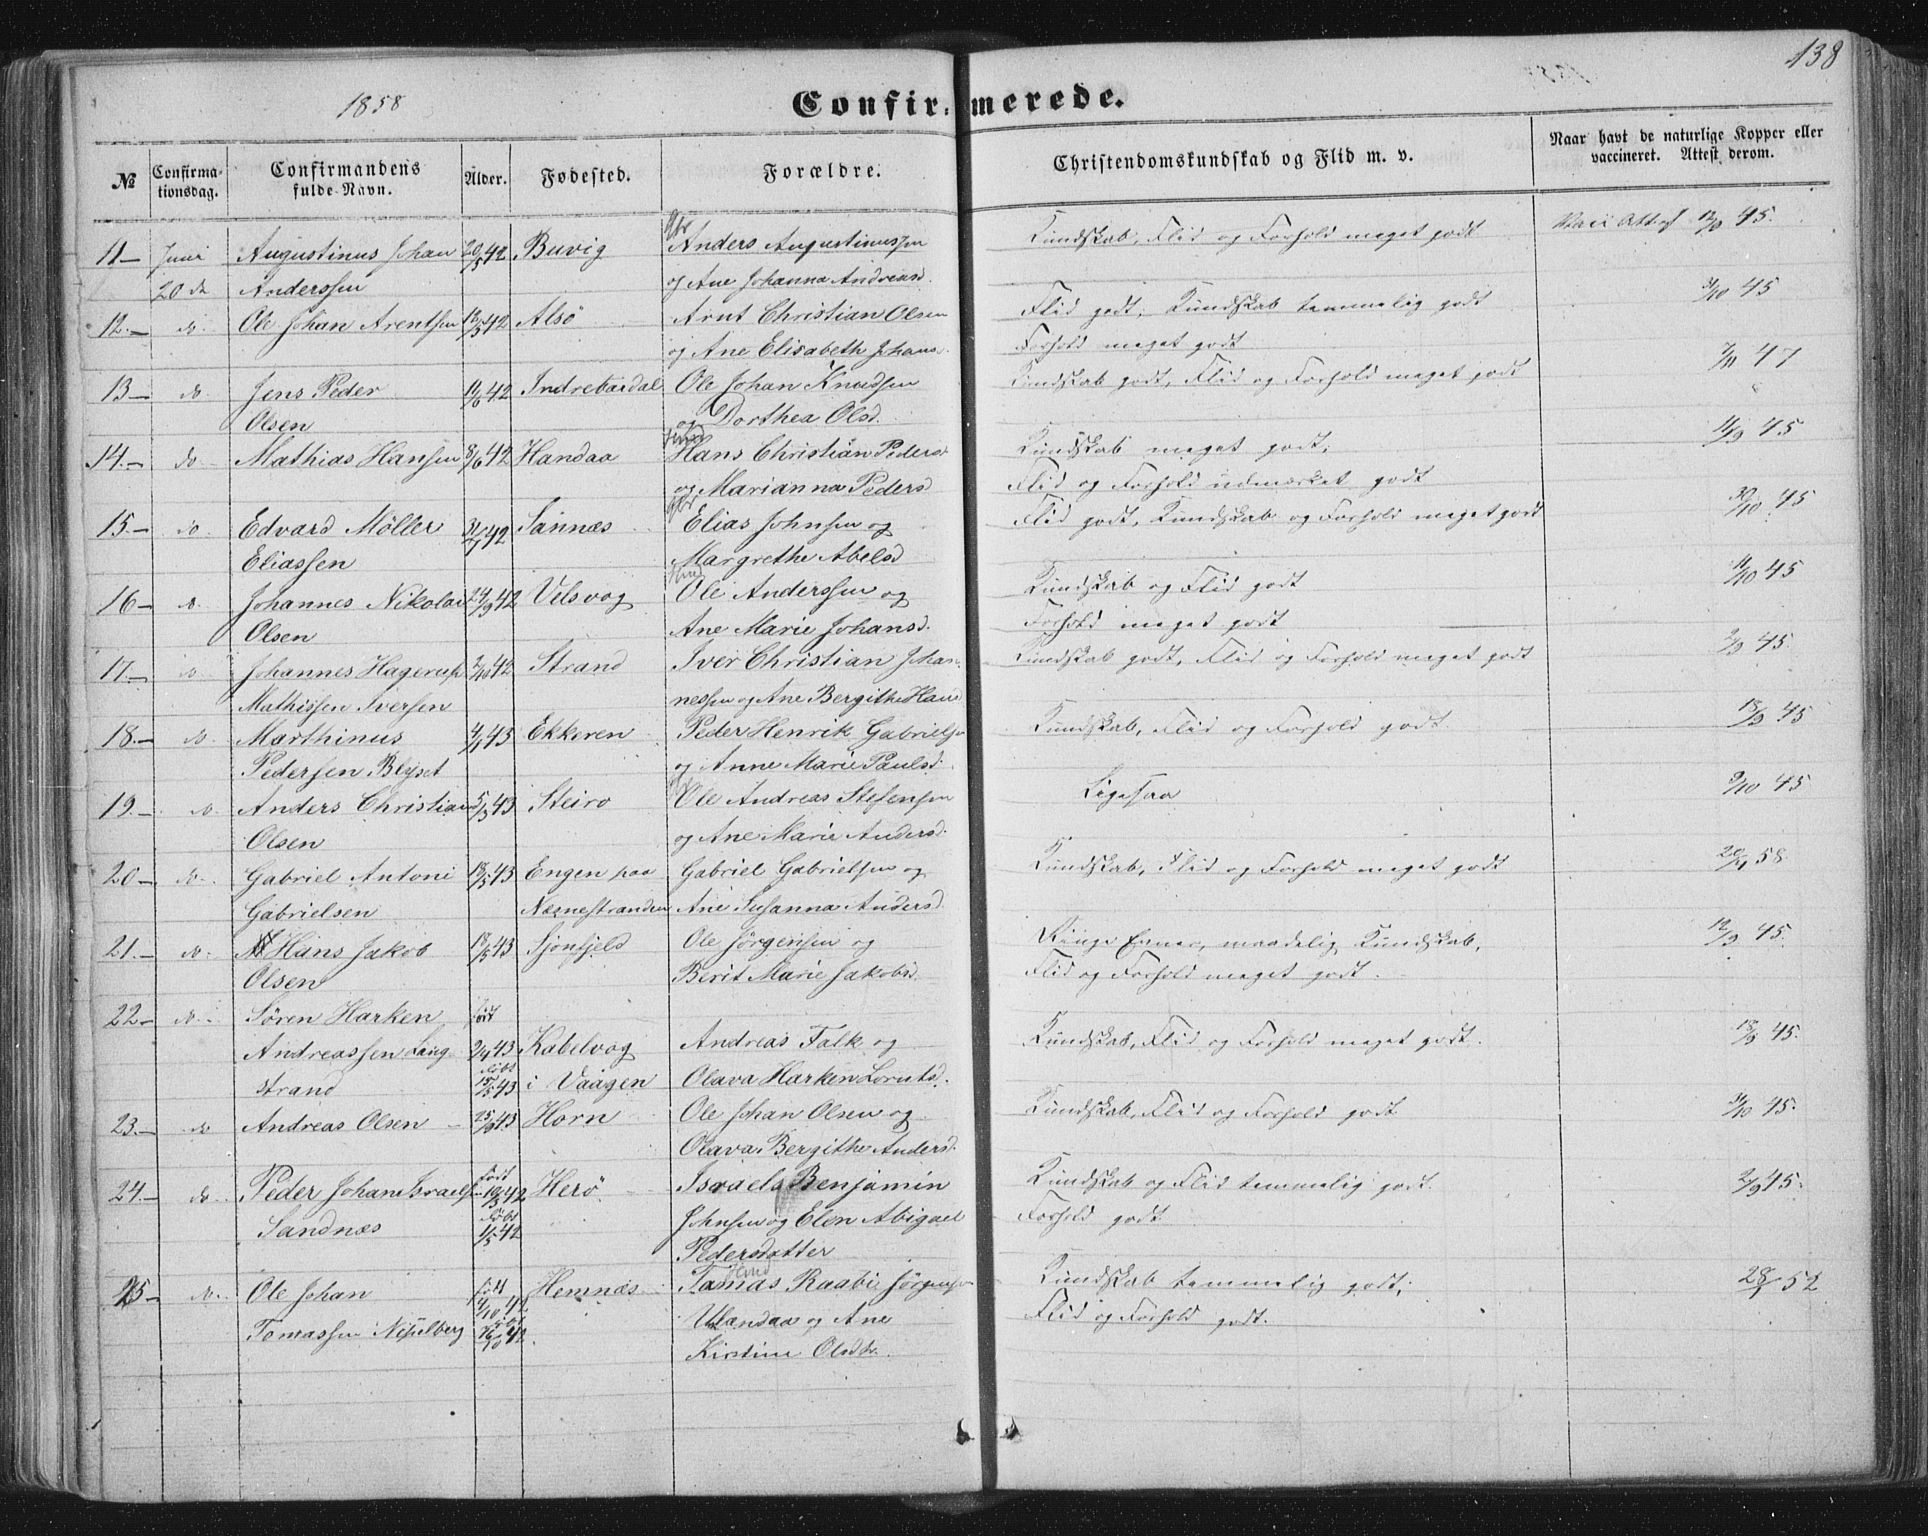 138
1858
Confirmerede.
№ Confirmationsdag. Confirmandens fulde Navn. Alder. Fødested. Forældre. Christendomskundskab og Flid m. v. Naar havt de naturlige Kopper eller vaccineret. Attest derom.
11 Juni Augustinus Johan 20/5 42 Buvig Gbr Anders Augustinussen Kundskab, Flid og Forhold meget godt Vacc Attest 12/9 45.
20 de Anderssen og Ane Johanna Andreasd.
12. do Ole Johan Arentsen 12/5 42 Alsö Arnt Christian Olsen Flid godt, Kundskab temmelig godt 3/10 45
og Ane Elisabeth Johans. Forhold meget godt
13 do. Jens Peder 11/6 42 Indrebardal Ole Johan Knudsen Kundskab godt, Flid og Forhold meget godt 7/11 47
Olsen og Dorthea Olsd.
14. do Mathias Hansen 8/6 42 Handaa Huusm Hans Christian Peders Kundskab meget godt, 11/9 45
og Marianna Peders Flid og Forhold udmærket godt
15 do. Edvard Möller 31/7 42 Sannæs Gbr Elias Johnsen og Flid godt, Kundskab og Forhold meget godt 30/10 45
Eliassen Margrethe Abelsd
16 do. Johannes Nikolai 24/9 42 Velsvog Ole Anderssen og Kundskab og Flid godt 11/10 45
Olsen Ane Marie Johansd. Forhold meget godt
17. do Johannes Hagerup 2/10 42 Strand Iver Christian Johan- Kundskab godt, Flid og Forhold meget godt 2/9 45
Mathissen Iversen nessen og Ane Bergithe Hansd
18. do Marthinus 4/1 43 Ekkeren Peder Henrik Gabrielsen Kundskab, Flid og Forhold godt. 13/9 45
Pedersen Blyset og Anne Marie Paulsd.
19. do. Anders Christian 5/3 43 Steiro Ole Andreas Stefensen Ligesaa 9/10 45
Olsen og Ane Marie Andersd.
20 do. Gabriel Antoni 18/3 43 Engen paa Gabriel Gabrielsen og Kundskab, Flid og Forhold meget godt 20/4 58
Gabrielsen Næsnestranden Ane Susanna Andersd.
21. do. Hans Jakob 18/5 43 Sjonfjeld Ole Jörgensen og Ringe Evner, maadelig Kundskab, 12/9 45.
Olsen Berit Marie Jakobsd. Flid og Forhold meget godt.
22 do. Sören Harken født
Andreassen Lang 2/4 43 Kabelvog Andreas Falk og Kundskab, Flid og Forhold meget godt. 18/9 45.
strand döbt 15/5 43 i Vaagen Olava Harken Lorntsd.
23. do Andreas Olsen 25/9 43 Horn Ole Johan Olsen og Kundskab, Flid og Forhold godt 31/10 45.
Olava Bergithe Andersd.
24. do. Peder Johan Israels født 19/3 42 Herö Israels Benjamin Kundskab og Flid temmelig godt. 2/9 45.
Sandnæs döbt 1/5 42 Johnsen og Elen Abigael Forhold godt
Pedersdatter
25 do. Ole Johan født 42 Hemnæs Tomas Raabie Jörgensen Kundskab temmelig godt; 28/1 52
Tomassen Nisselberg döbt 16/10 42. og Ane Flid og Forhold godt.
Kirstine Olsdtr.